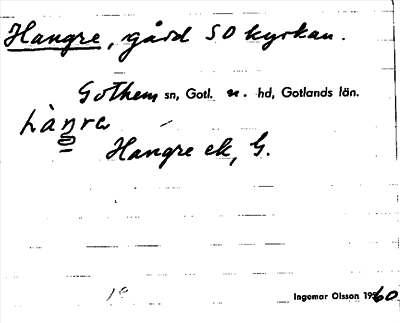 Hangre, gård SO kyrkan.
Gothem sn, Gotl. n. hd, Gotlands län.
Hangre ek, G.
Ingemar Olsson 1960